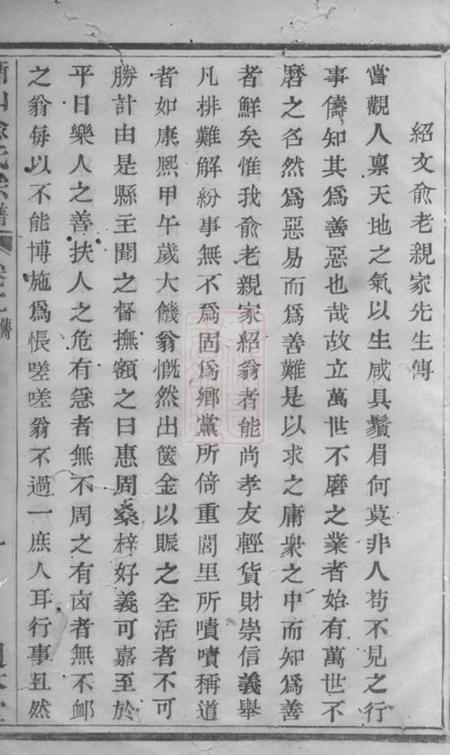 紹文俞老親家先生傳
嘗觀人禀天地之氣以生咸具鬚眉何莫非人苟不見之行
事儔知其為善惡也哉故立萬世不磨之業者始有萬世不
磿之名然為惡易而為善難是以求之庸衆之中而知為善
者鮮矣惟我俞老親家紹翁者能尚孝友輕貨財崇信義舉
凡排難解紛事無不為固為鄉黨所倚重閭里所嘖嘖稱道
者如康熈甲午歲大饑翁慨然出篋金以賑之全活者不可
勝計由是縣主聞之督撫額之曰惠周桑梓好義可嘉至於
平日樂人之善扶人之危有急者無不周之有卤者無不卹
之翁每以不能博施為悵嗟嗟翁不過一庶人耳行事且然
俞氏宗譜
傳